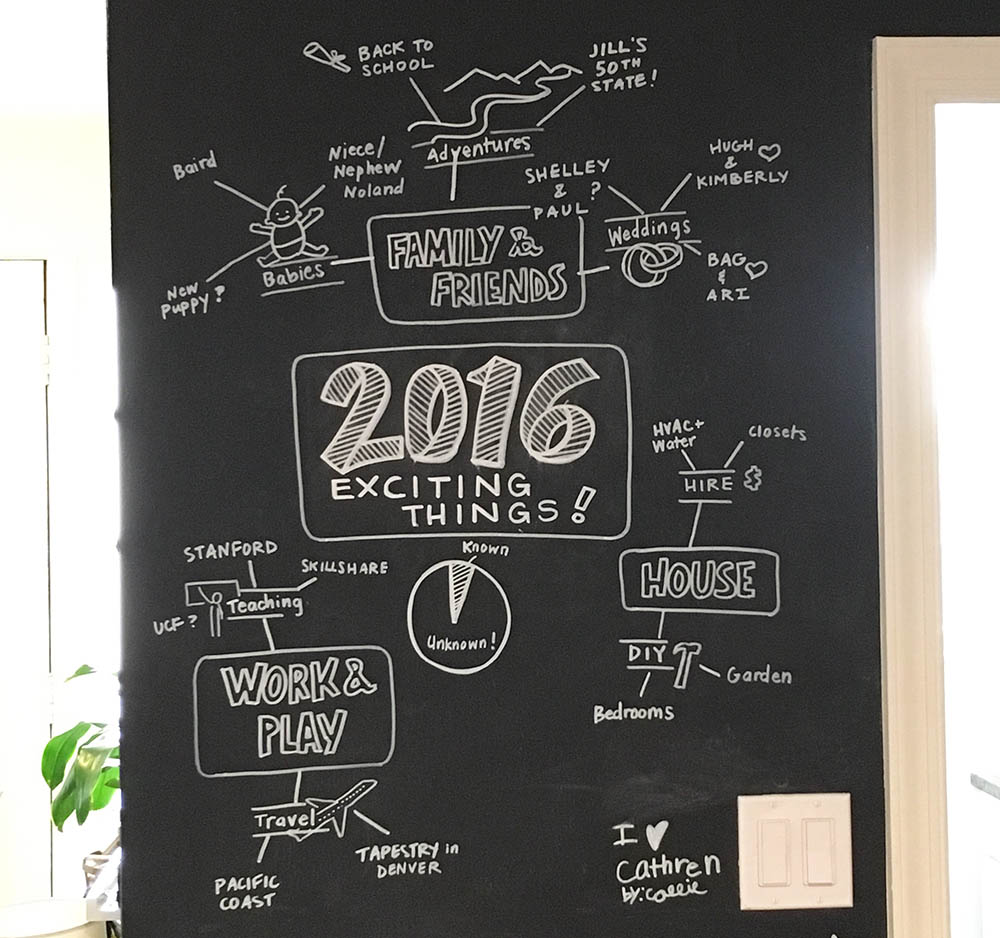 BACK TO
SCHOOL
JILL'S
50TH
STATE!
Adventures
Baird
Niece/
Nephew
Noland
New
Puppy?
Babies
FAMILY &
FRIENDS
SHELLEY
&
PAUL?
HUGH
&
KIMBERLY
Weddings
BAG
&
ARI
2016
EXCITING
THINGS!
Known
Unknown!
HVAC+
Water
Closets
HIRE $
HOUSE
DIY
Garden
Bedrooms
STANFORD
SKILLSHARE
UCF?
Teaching
WORK &
PLAY
Travel
PACIFIC
COAST
TAPESTRY in
DENVER
I ♥
Cathren
by: Callie